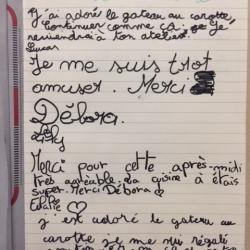 J'ai adoré le gateau au carotte,
continuer comme ça. Je
reviendrai a ton atelier.
Lucas
Je me suis trot
amuser. Merci
Débora.
Merci pour cette après-midi
très agréable. La cuisine à étais
super. Merci Débora
j'est adoré le gateau au
carotte je me sui régalé